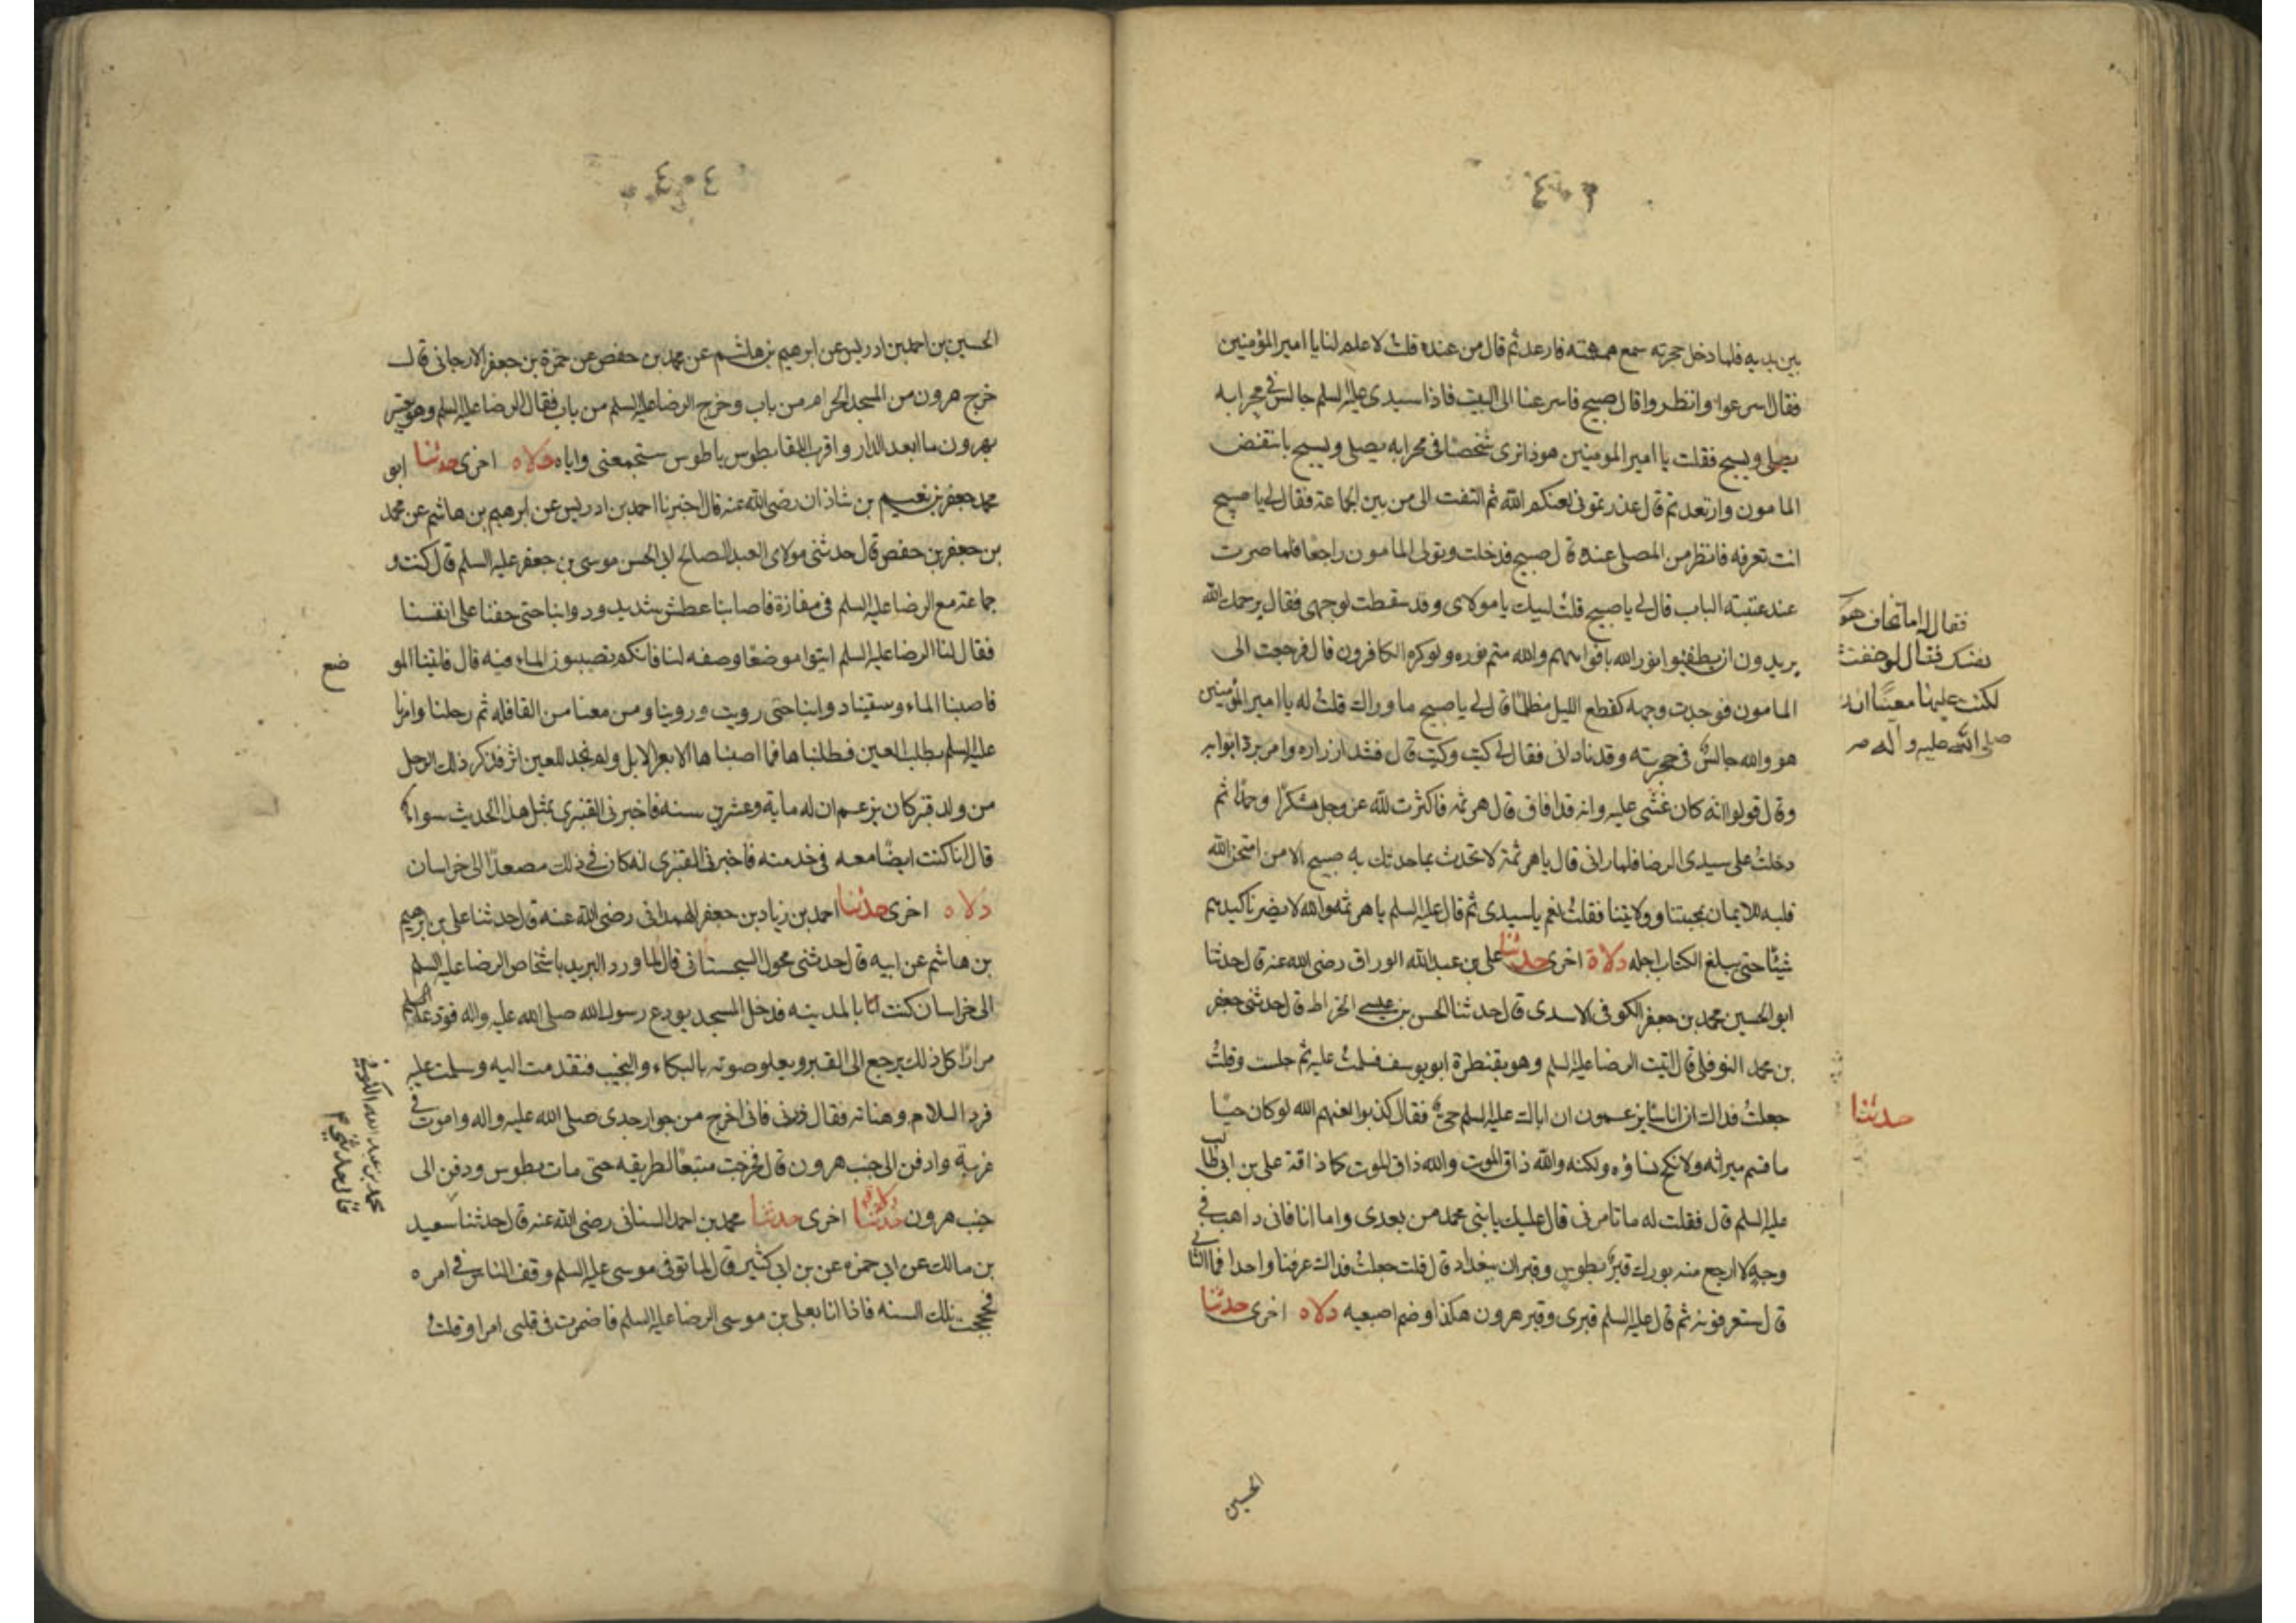 بين يديه فلما دخل حجرته سمع همهمته فارعد ثم قال من عنده قلت لا علم لنا يا امير المؤمنين
فقال اسرعوا وانظروا قال صبيح فاسرعنا الى البيت فاذا سيدى عليه السلم جالس فى محرابه
يصلى ويسبح فقلت يا امير المومنين هو ذا نرى شخصا فى محرابه يصلى ويسبح فانتفض
المامون وارتعد ثم قال غدرتمونى لعنكم الله ثم التفت الى من بين الجماعة فقال لى يا صبيح
انت تعرفه فانظر من المصلى عنده قال صبيح فدخلت وتولى المامون راجعا فلما صرت
عند عتبة الباب قال لى يا صبيح قلت لبيك يا مولاى وقد سقطت لوجهى فقال يرحمك الله
يريدون ان يطفئوا نور الله بافواههم والله متم نوره ولو كره الكافرون قال فرجعت الى
المامون فوجدت وجهه كقطع الليل مظلما قال لى يا صبيح ما وراك قلت له يا امير المؤمنين
هو والله جالس فى حجرته وقد نادانى فقال لى كيت وكيت قال فشد ازراره وامر برد اثوابه
وقال قولوا انه كان غشى عليه وانه قد افاق قال هرثمه فاكثرت لله عز وجل شكرا وحمدا ثم
دخلت على سيدى الرضا فلما رانى قال يا هرثمة لا تحدث بما حدثك به صبيح الا من امتحن الله
قلبه للايمان بمحبتنا وولايتنا فقلت نعم يا سيدى ثم قال عليه السلم يا هرثمه والله لا يضرنا كيدهم
شيئا حتى يبلغ الكتاب اجله دلالة اخرى حدثنا على بن عبد الله الوراق رضى الله عنه قال حدثنا
ابو الحسين محمد بن جعفر الكوفى الاسدى قال حدثنا الحسن بن عيسى الخراط قال حدثنى جعفر
بن محمد النوفلى قال اتيت الرضا عليه السلم وهو بقنطرة ابو يوسف فسلمت عليه ثم جلست وقلت
جعلت فداك ان اناسا يزعمون ان اباك عليه السلم حى فقال كذبوا لعنهم الله لو كان حيا
ما قسم ميراثه ولا نكح نساؤه ولكنه والله ذاق الموت والله ذاق الموت كما ذاقه على بن ابى طالب
عليه السلم قال فقلت له ما تامرنى قال عليك يا بنى محمد من بعدى واما انا فانى ذاهب فى
وجه لا ارجع منه بورك قبر بطوس وقبران ببغداد قال قلت جعلت فداك عرفنا واحدا فما الثانى
قال ستعرفونه ثم قال عليه السلم قبرى وقبر هرون هكذا وضم اصبعيه دلاله اخرى حدثنا
فقال له اما تخاف هو
نفسك فقال لو خفت
لكنت عليها معينا
صلى الله عليه وآله
حدثنا
الحسين
٤٠٤
الحسين بن احمد بن ادريس عن ابرهيم بن هاشم عن محمد بن حفص عن حمزة بن جعفر الارجانى قال
خرج هرون من المسجد الحرام من باب وخرج الرضا عليه السلم من باب فقال الرضا عليه السلم وهو يعتبر
بهرون ما ابعد الدار واقرب اللقا بطوس يا طوس ستجمعنى واياه دلاله اخرى حدثنا ابو
محمد جعفر بن نعيم بن شاذان رضى الله عنه قال اخبرنا احمد بن ادريس عن ابرهيم بن هاشم عن محمد
بن جعفر بن حفص قال حدثنى مولاى العبد الصالح ابى الحسن موسى بن جعفر عليه السلم قال كنت و
جماعة مع الرضا عليه السلم فى مفازة فاصابنا عطش شديد ودوابنا حتى خفنا على انفسنا
فقال لنا الرضا عليه السلم ايتوا موضعا وصفه لنا فانكم تصيبون الماء فيه قال فاتينا المو
ضع
فاصبنا الماء وسقينا دوابنا حتى رويت وروينا ومن معنا من القافله ثم رحلنا وامرنا
عليه السلم بطلب العين فطلبناها فما اصبنا ها الا بعر الابل ولم نجد للعين اثر فذكر ذلك الرجل
من ولد قنبر كان يزعم ان له مايه وعشرين سنه فاخبرنى القنبرى بمثل هذا الحديث سواء
قال انا كنت ايضا معه فى خدمته فاخبرنى القنبرى انه كان فى ذلك مصعدا الى خراسان
دلاله اخرى حدثنا احمد بن زياد بن جعفر الهمدانى رضى الله عنه قال حدثنا على بن ابرهيم
بن هاشم عن ابيه قال حدثنى محول السجستانى قال لما ورد البريد باشخاص الرضا عليه السلم
الى خراسان كنت انا بالمدينه فدخل المسجد يودع رسول الله صلى الله عليه واله فودعه
مرارا كل ذلك يرجع الى القبر ويعلو صوته بالبكاء والنحيب فتقدمت اليه وسلمت عليه
فرد السلام وهناته فقال ذرنى فانى اخرج من جوار جدى صلى الله عليه واله واموت فى
غربة وادفن الى جنب هرون قال فخرجت متبعا لطريقه حتى مات بطوس ودفن الى
جنب هرون دلاله اخرى حدثنا محمد بن احمد السنانى رضى الله عنه قال حدثنا سعيد
بن مالك عن ابى حمزه عن بن ابى كثير قال لما توفى موسى عليه السلم وقف الناس فى امره
فحججت تلك السنه فاذا انا بعلى بن موسى الرضا عليه السلم فاضمرت فى قلبى امرا وقلت
محمد بن عبد الله الكوفى
قال حدثنى